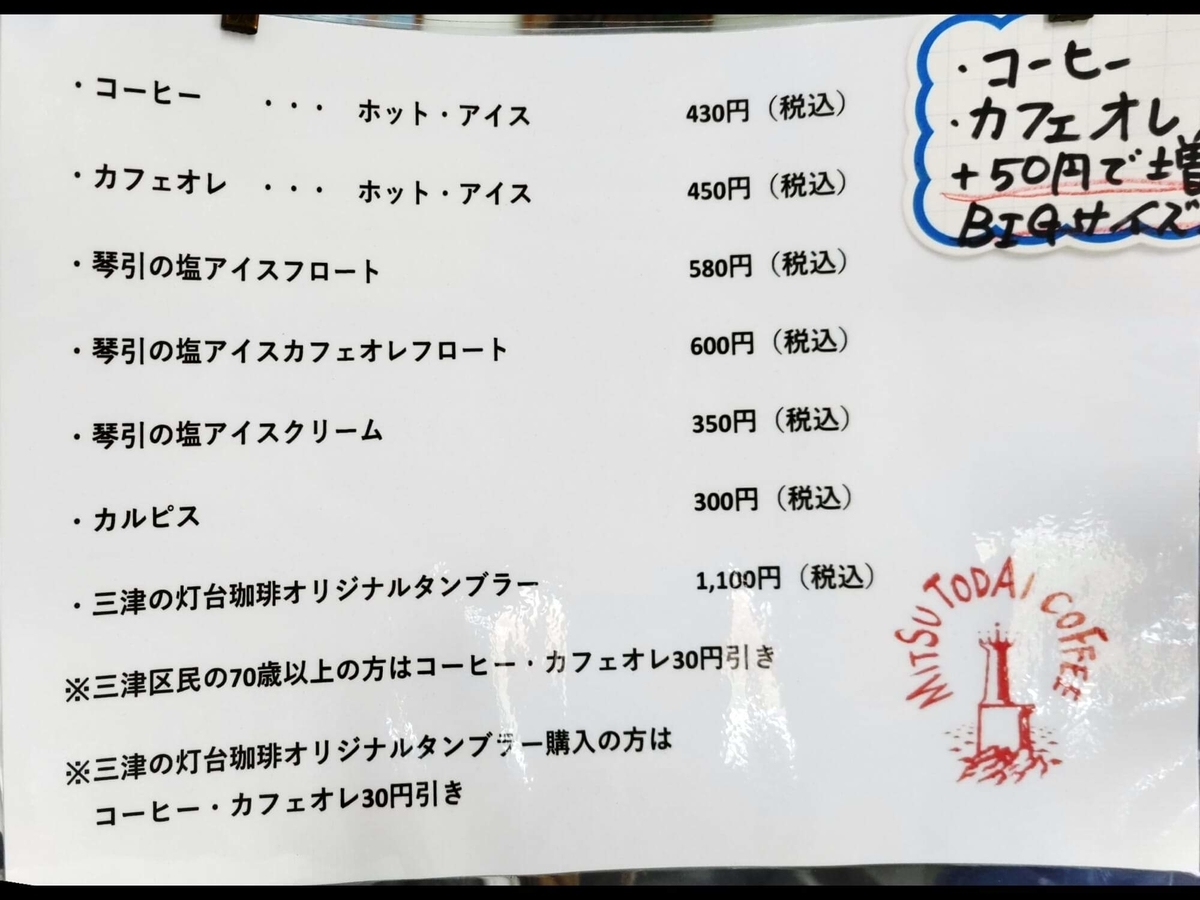 ・コーヒー ・・・ ホット・アイス 430円（税込）
・カフェオレ ・・・ ホット・アイス 450円（税込）
・琴引の塩アイスフロート 580円（税込）
・琴引の塩アイスカフェオレフロート 600円（税込）
・琴引の塩アイスクリーム 350円（税込）
・カルピス 300円（税込）
・三津の灯台珈琲オリジナルタンブラー 1,100円（税込）
※三津区民の70歳以上の方はコーヒー・カフェオレ30円引き
※三津の灯台珈琲オリジナルタンブラー購入の方は
コーヒー・カフェオレ30円引き
・コーヒー
・カフェオレ
+50円で増
BIGサイズ
MITSU TODAI COFFEE